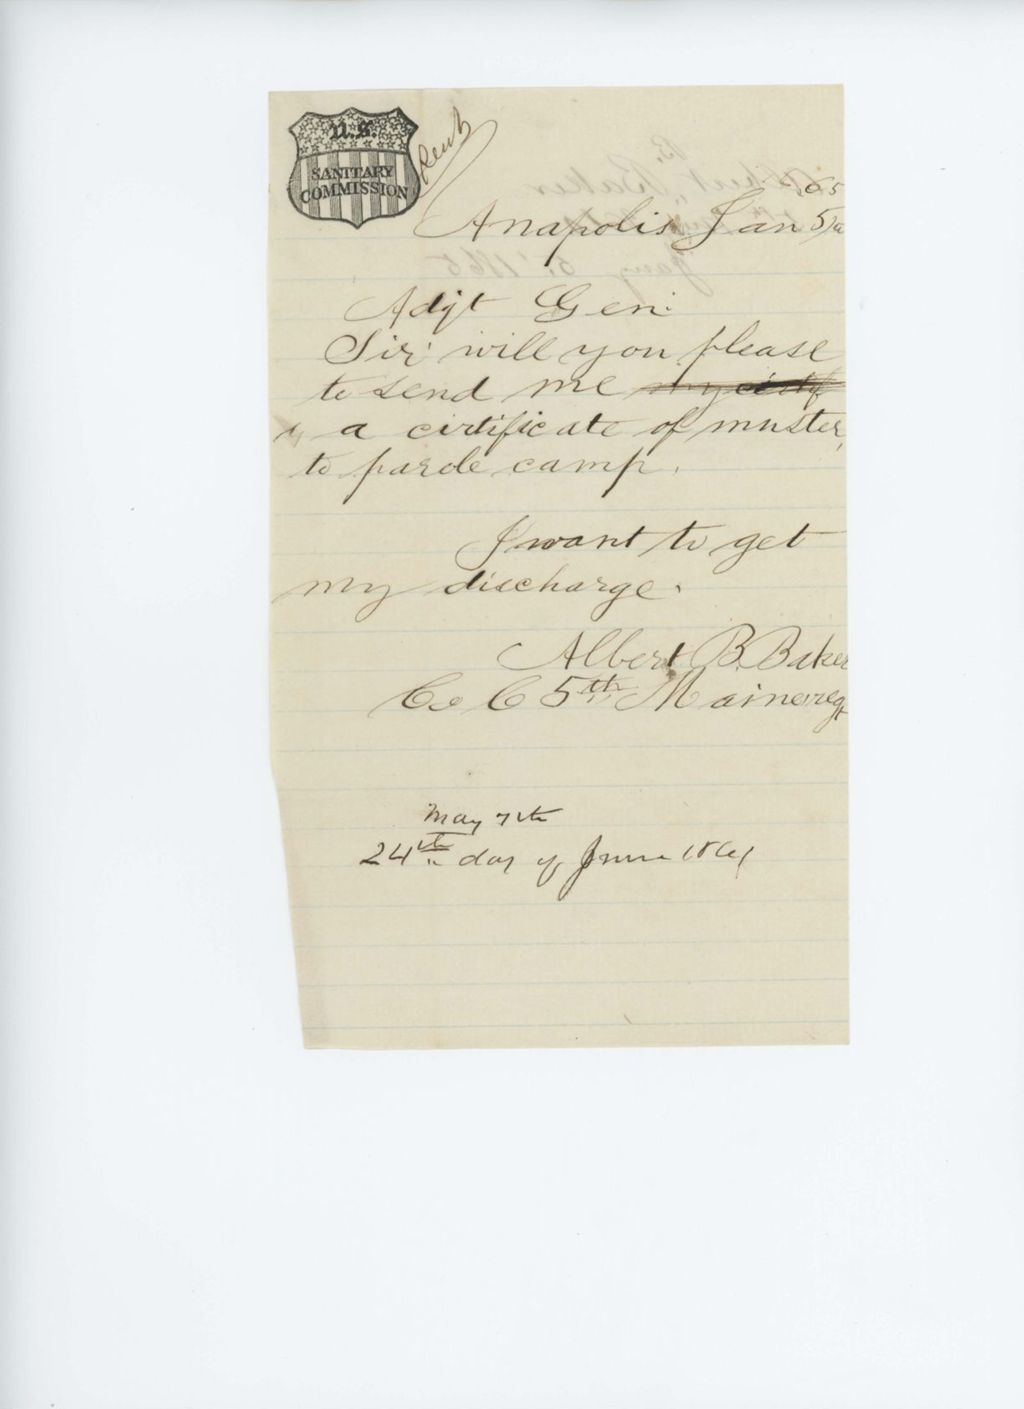 U.S.
SANITARY
COMMISSION
65
Anapolis Jan 5/
Adjt Gen.
Sir: will you please
to send me my certif
a cirtificate of muster,
to parole camp.
I want to get
my discharge.
Albert B. Baker
Co C 5th Maine reg
May 7th
24th day of June 1861
B.
Albert Baker
Jany 5. 1865